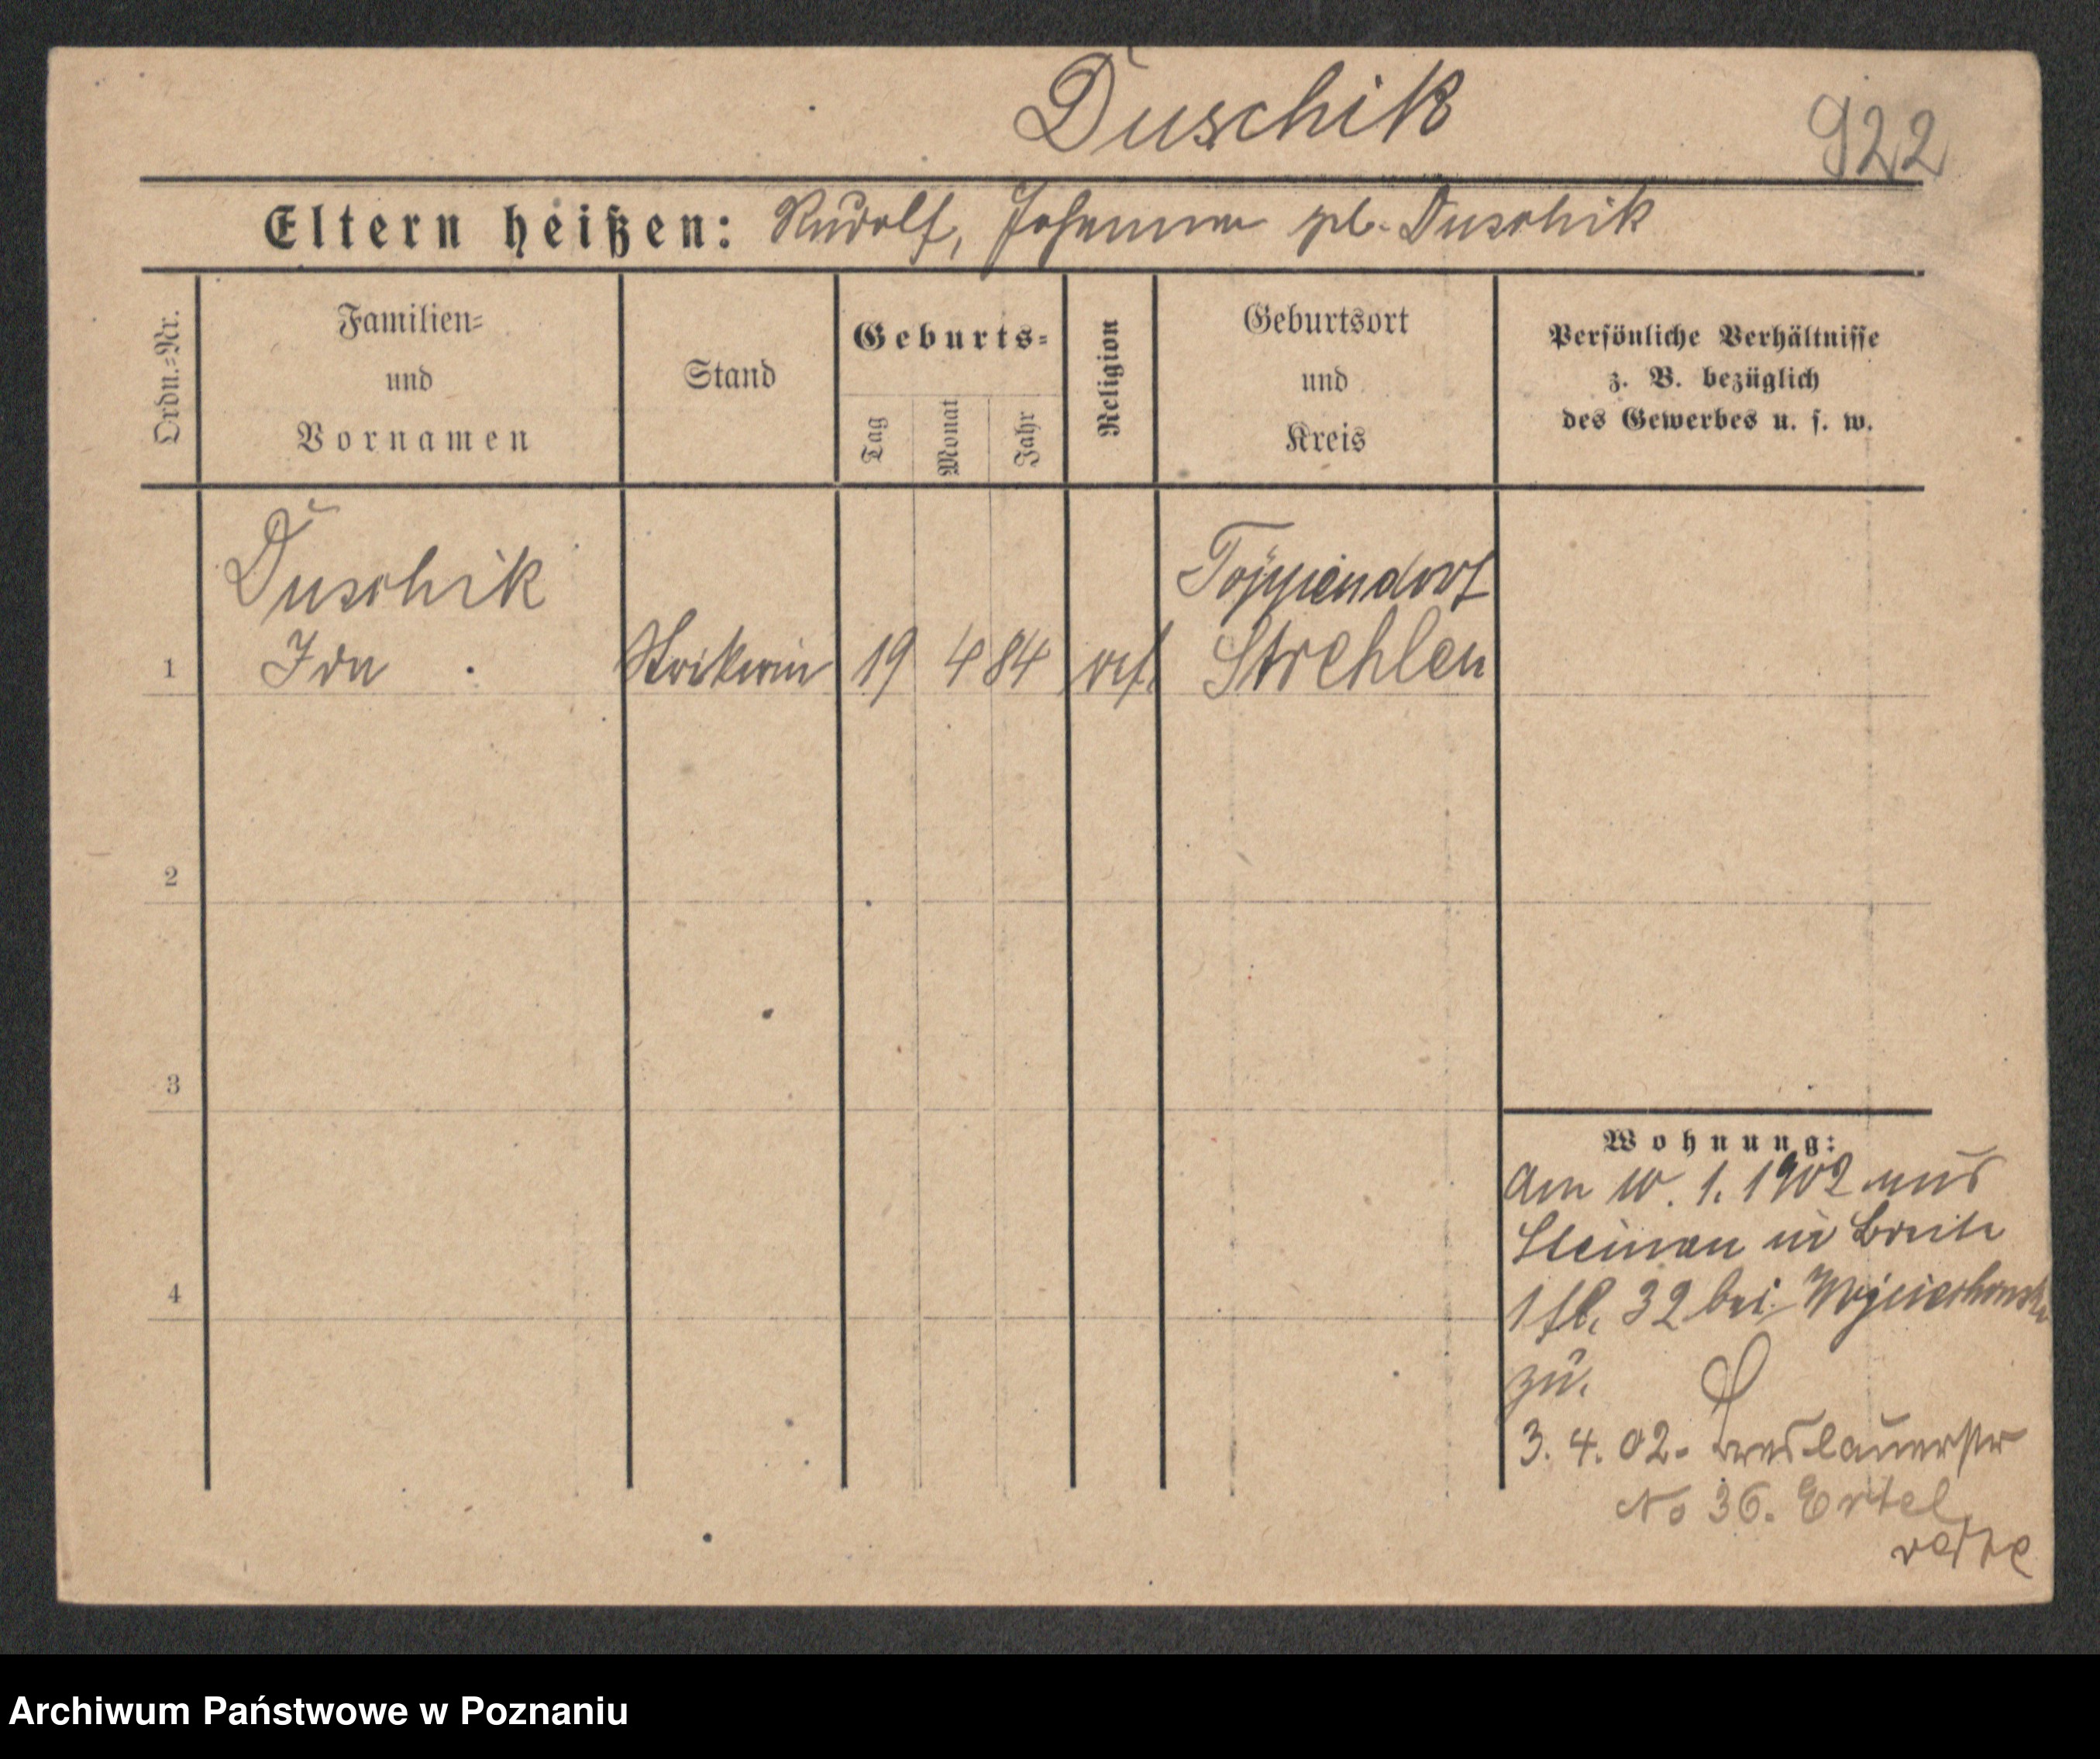 Duschik
922
Eltern heißen: Rudolf, Johanna geb. Duschik
Ordn.=Nr.
Familien=
und
Vornamen
Stand
Geburts=
Tag
Monat
Jahr
Religion
Geburtsort
und
Kreis
Persönliche Verhältnisse
z. B. bezüglich
des Gewerbes u. s. w.
Duschik
Töppendorf
1 Ida Strikerin 19 4 84 ref. Strehlen
2
3
4
Wohnung:
Am 10. 1. 1902 aus
Steinau in Breite
32 bei
zu.
3. 4. 02. Breslauerstr
No 36. Ertel
Archiwum Państwowe w Poznaniu